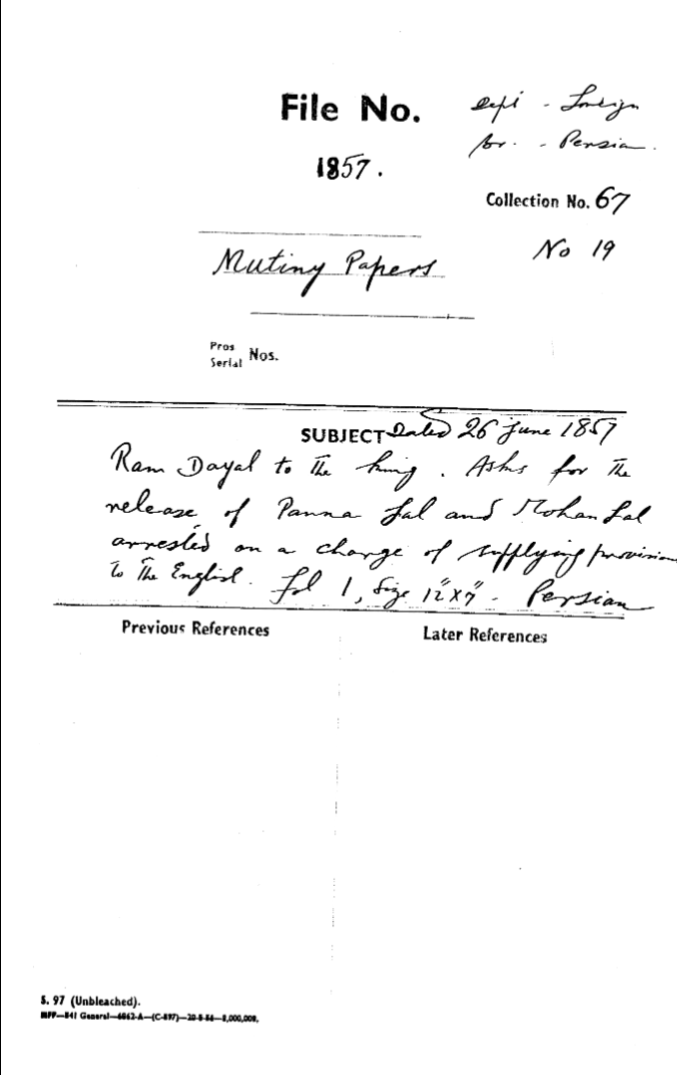 File No.
Dept - Foreign
br. - Persian.
1857.
Collection No. 67
No 19
Mutiny Papers
Pros
Serial Nos.
SUBJECT Dated 26 June 1857
Ram Dayal to The king. Asks for The
release of Panna Lal and Mohan Lal
arrested on a charge of supplying provision
to The English. fol 1, Size 12"x7" - Persian
Previous References
Later References
S. 97 (Unbleached).
MFP—841 General—6862-A—(C-897)—20-8-56—2,000,000.